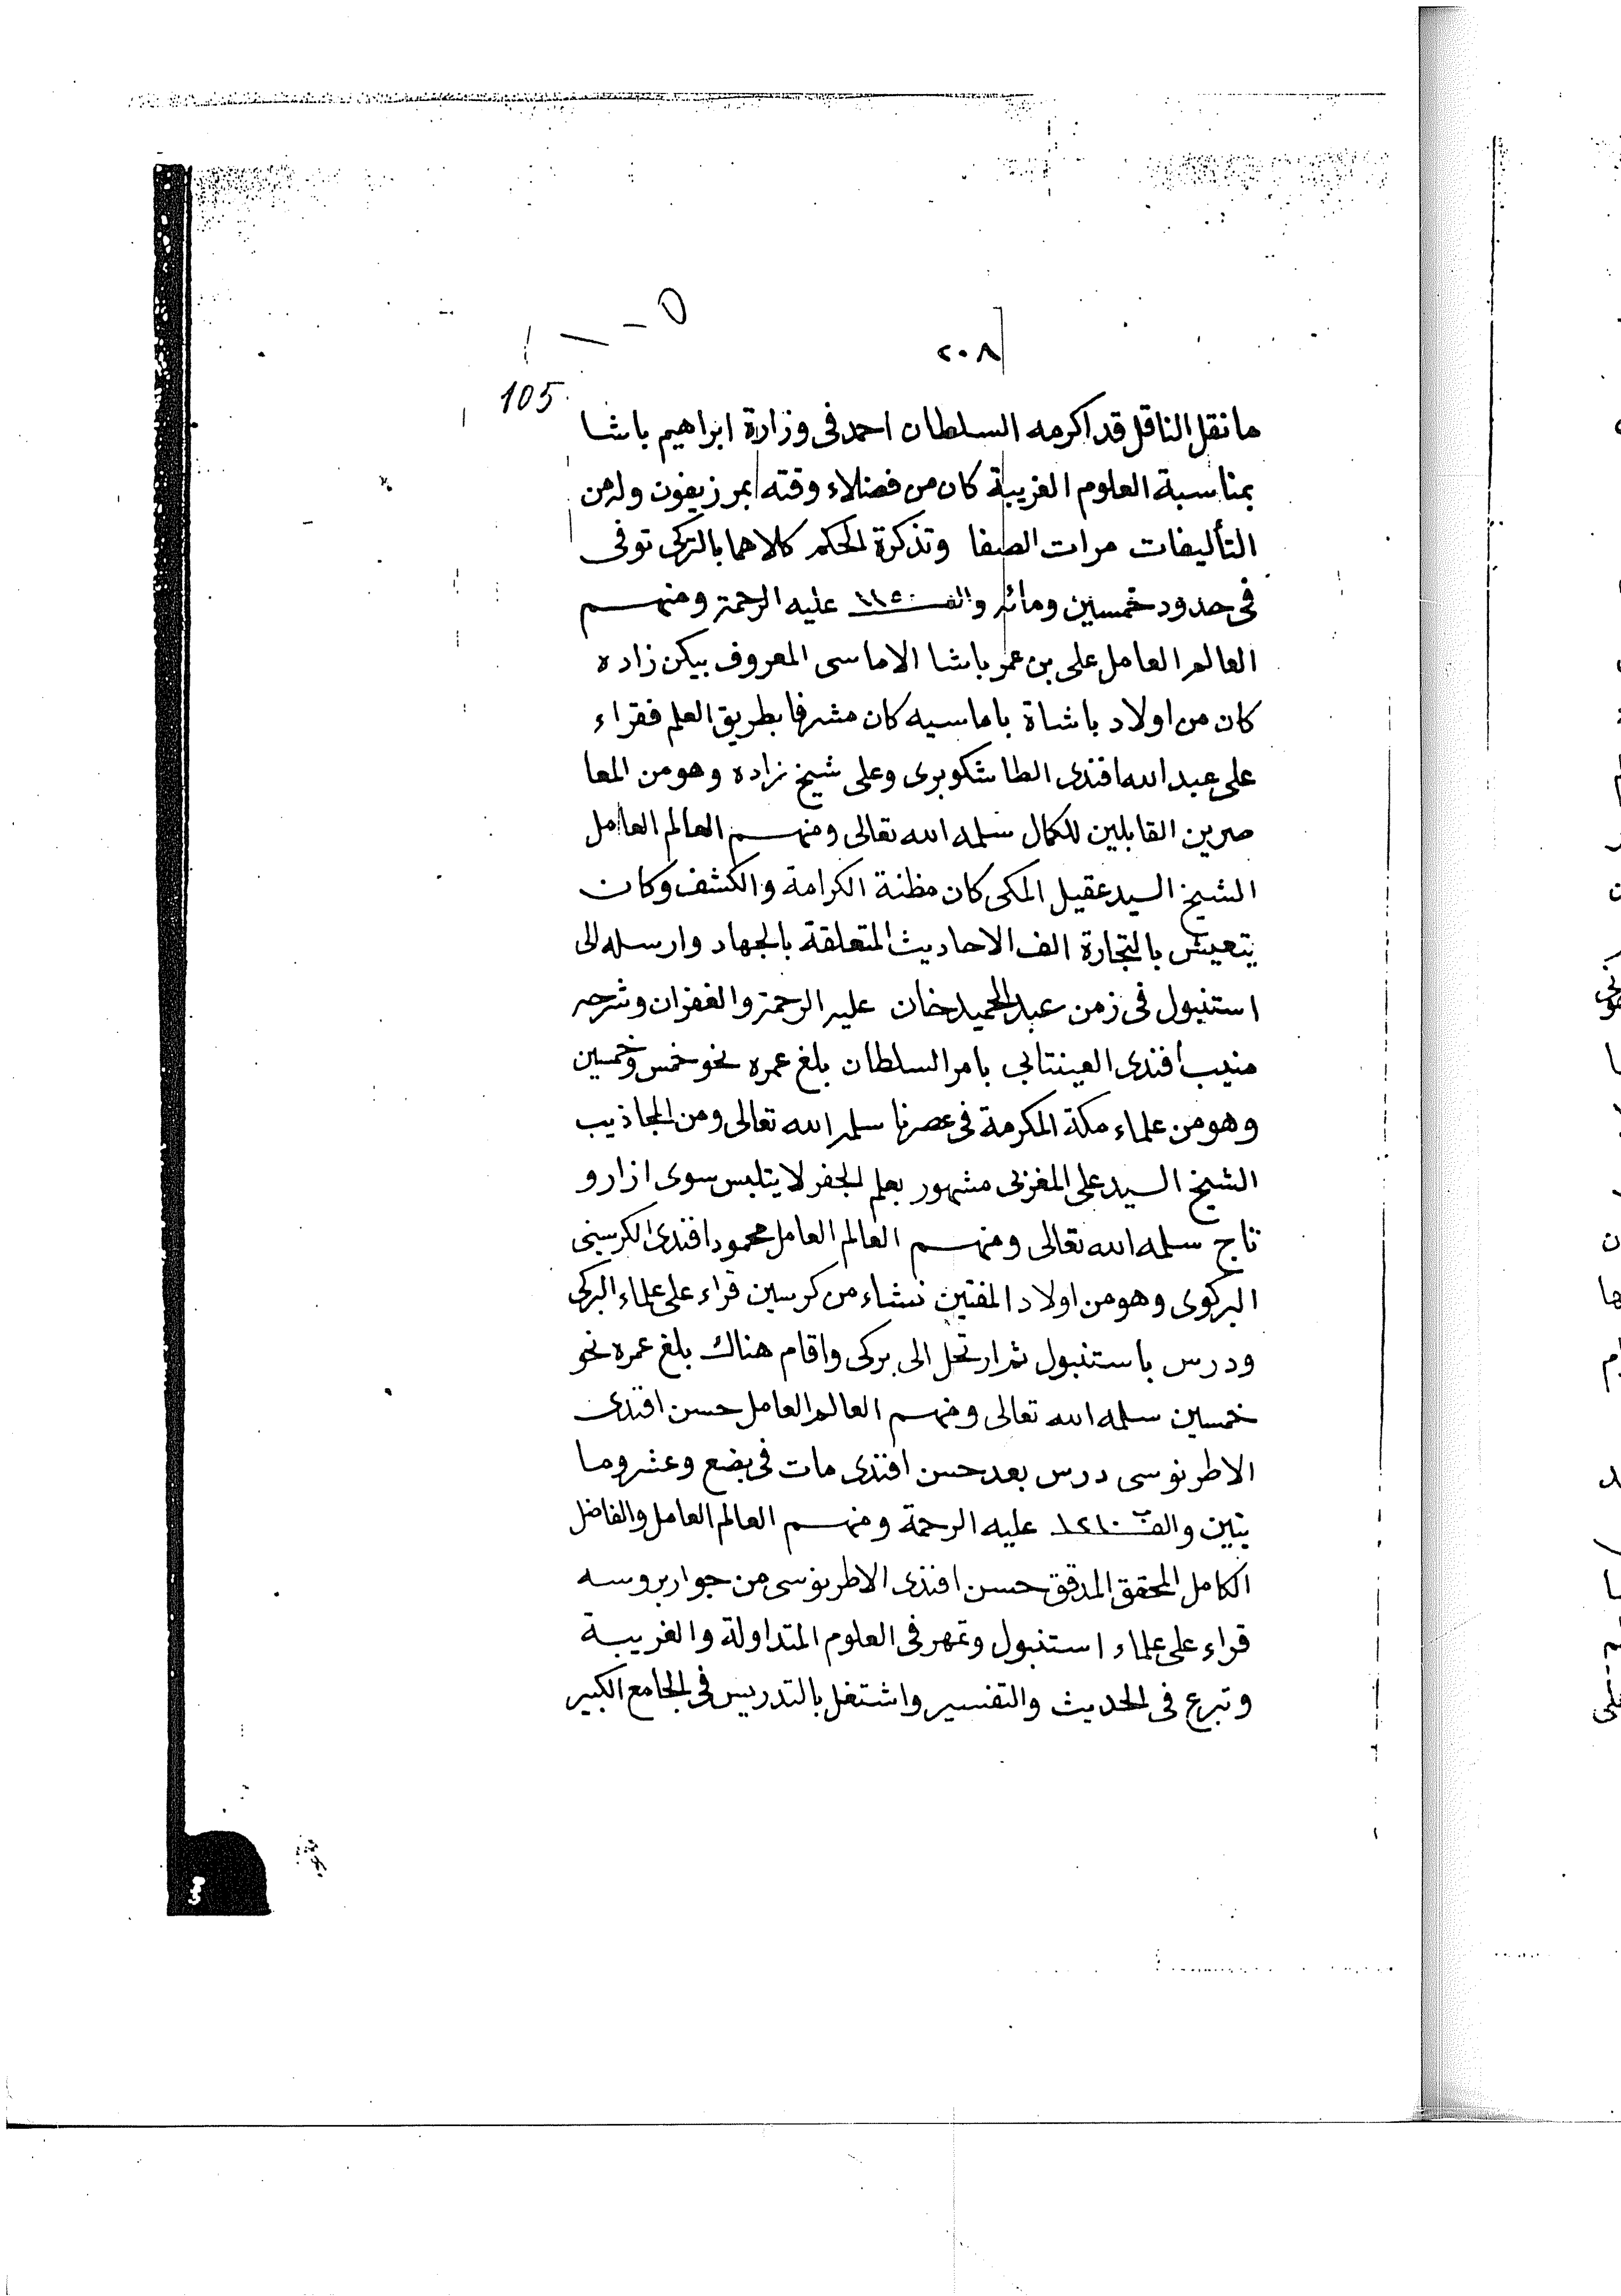 ٢٠٨
105
ما نقل الناقل قد اكرمه السلطان احمد فى وزارة ابراهيم باشا
بمناسبة العلوم الغريبة كان من فضلاء وقته بمرزيفون وله من
التأليفات مرات الصفا وتذكرة الحكم كلاهما بالتركى توفى
فى حدود خمسين ومائه والف ١١٥٠ عليه الرحمة ومنهم
العالم العامل على بن عمر باشا الاماسى المعروف بيكن زاده
كان من اولاد باشاة باماسيه كان مشرفا بطريق العلم فقراء
على عبد الله افندى الطاشكوبرى وعلى شيخ زاده وهو من المعا
صرين القابلين للكمال سلمه الله تعالى ومنهم العالم العامل
الشيخ السيد عقيل المكى كان مظنة الكرامة والكشف وكان
يتعيش بالتجارة الف الاحاديث المتعلقة بالجهاد وارسله الى
استنبول فى زمن عبد الحميد خان عليه الرحمة والغفران وشرحه
منيب افندى العينتابى بامر السلطان بلغ عمره نحو خمس وخمسين
وهو من علماء مكة المكرمة فى عصرنا سلمه الله تعالى ومن المجاذيب
الشيخ السيد على المغربى مشهور بعلم الجفر لا يتلبس سوى ازار و
تاج سلمه الله تعالى ومنهم العالم العامل محمود افندى الكرسينى
البركوى وهو من اولاد المفتين نشاء من كرسين قراء على علماء البركى
ودرس باستنبول ثم ارتحل الى بركى واقام هناك بلغ عمره نحو
خمسين سلمه الله تعالى ومنهم العالم العامل حسن افندى
الاطرنوسى درس بعد حسن افندى مات فى بضع وعشر وما
يتين والف ١٢١٠ عليه الرحمة ومنهم العالم العامل والفاضل
الكامل المحقق المدقق حسن افندى الاطرنوسى من جوار بروسه
قراء على علماء استنبول وتمهر فى العلوم المتداولة والغريبة
وتبرع فى الحديث والتفسير واشتغل بالتدريس فى الجامع الكبير